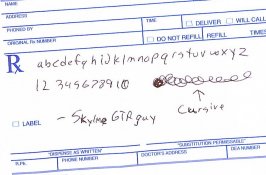 NAME
ADDRESS
PHONED BY
ORIGINAL Rx NUMBER
TIME
DELIVER
WILL CALL
DO NOT REFILL
REFILL
TIMES
Rx
abcdefghijklmnopqrstuvwxyz
12345678910
Cursive
LABEL
- Skyline GTR guy
"DISPENSE AS WRITTEN"
"SUBSTITUTION PERMISSABLE"
R.PH.
PHONE NUMBER
DOCTOR'S ADDRESS
DEA NUMBER